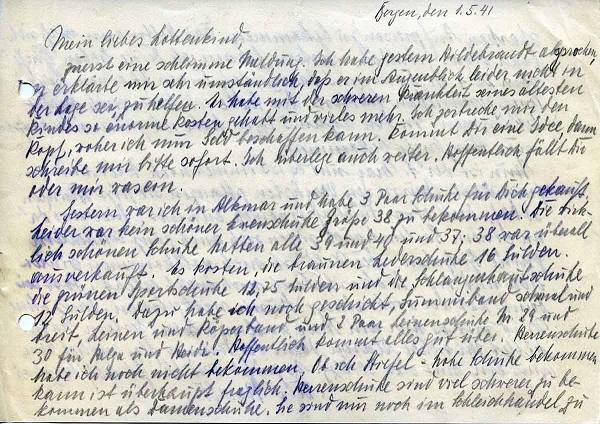 Bergen, den 1.5.41
Mein liebes Lottenkind,
zuerst eine schlimme Meldung. Ich habe gestern Hildebrandt gesprochen,
er erklärte mir sehr umständlich, daß er im Augenblick leider nicht in
der Lage sei zu helfen. Er habe mit der schweren Krankheit seines ältesten
Kindes so enorme Kosten gehabt und vieles mehr. Ich zerbreche mir den
Kopf, woher ich nun Geld beschaffen kann. Kommt Dir eine Idee, dann
schreibe mir bitte sofort. Ich überlege auch weiter. Hoffentlich fällt Dir
oder mir was ein.
Gestern war ich in Alkmar und habe 3 Paar Schuhe für Dich gekauft.
Leider war kein schöner Größe 38 zu bekommen. Die wirk-
lich schönen Schuhe hatten alle 39 und 40 und 37; 38 war überall
ausverkauft. Es kosten, die braunen Lederschuhe 16 Gulden.
die grünen Sportschuhe 12,25 Gulden und die Schlangenhautschuhe
12 Gulden. Dazu habe ich noch geschickt, Gummiband schmal und
breit, Leinen und Köperband und 2 Paar Leinenschuhe Nr. 29 und
30 für Helga und Heidi. Hoffentlich kommt alles gut über. Herrenschuhe
habe ich noch nicht bekommen. Ob ich Stiefel - hohe Schuhe bekommen
kann ist überhaupt fraglich. Herrenschuhe sind viel schwerer zu be-
kommen als Damenschuhe. Sie sind nur noch im Schleichhandel zu